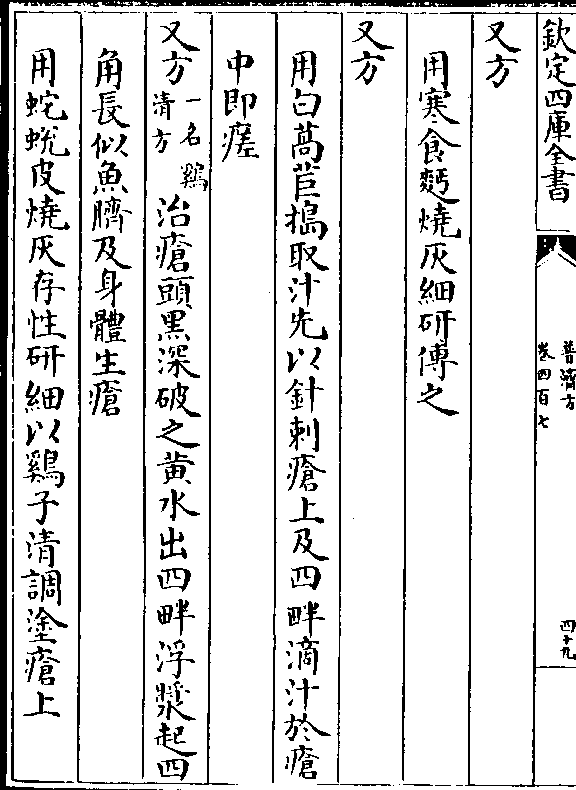 欽定四庫全書
普濟方
卷四百七
四十九
又方
用寒食麪燒灰細研傅之
又方
用白萵苣搗取汁先以針刺瘡上及四畔滴汁於瘡
中即瘥
又方一名鷄清方治瘡頭黑深破之黄水出四畔浮漿起四
角長似魚臍及身體生瘡
用蛇蛻皮燒灰存性研細以鷄子清調塗瘡上